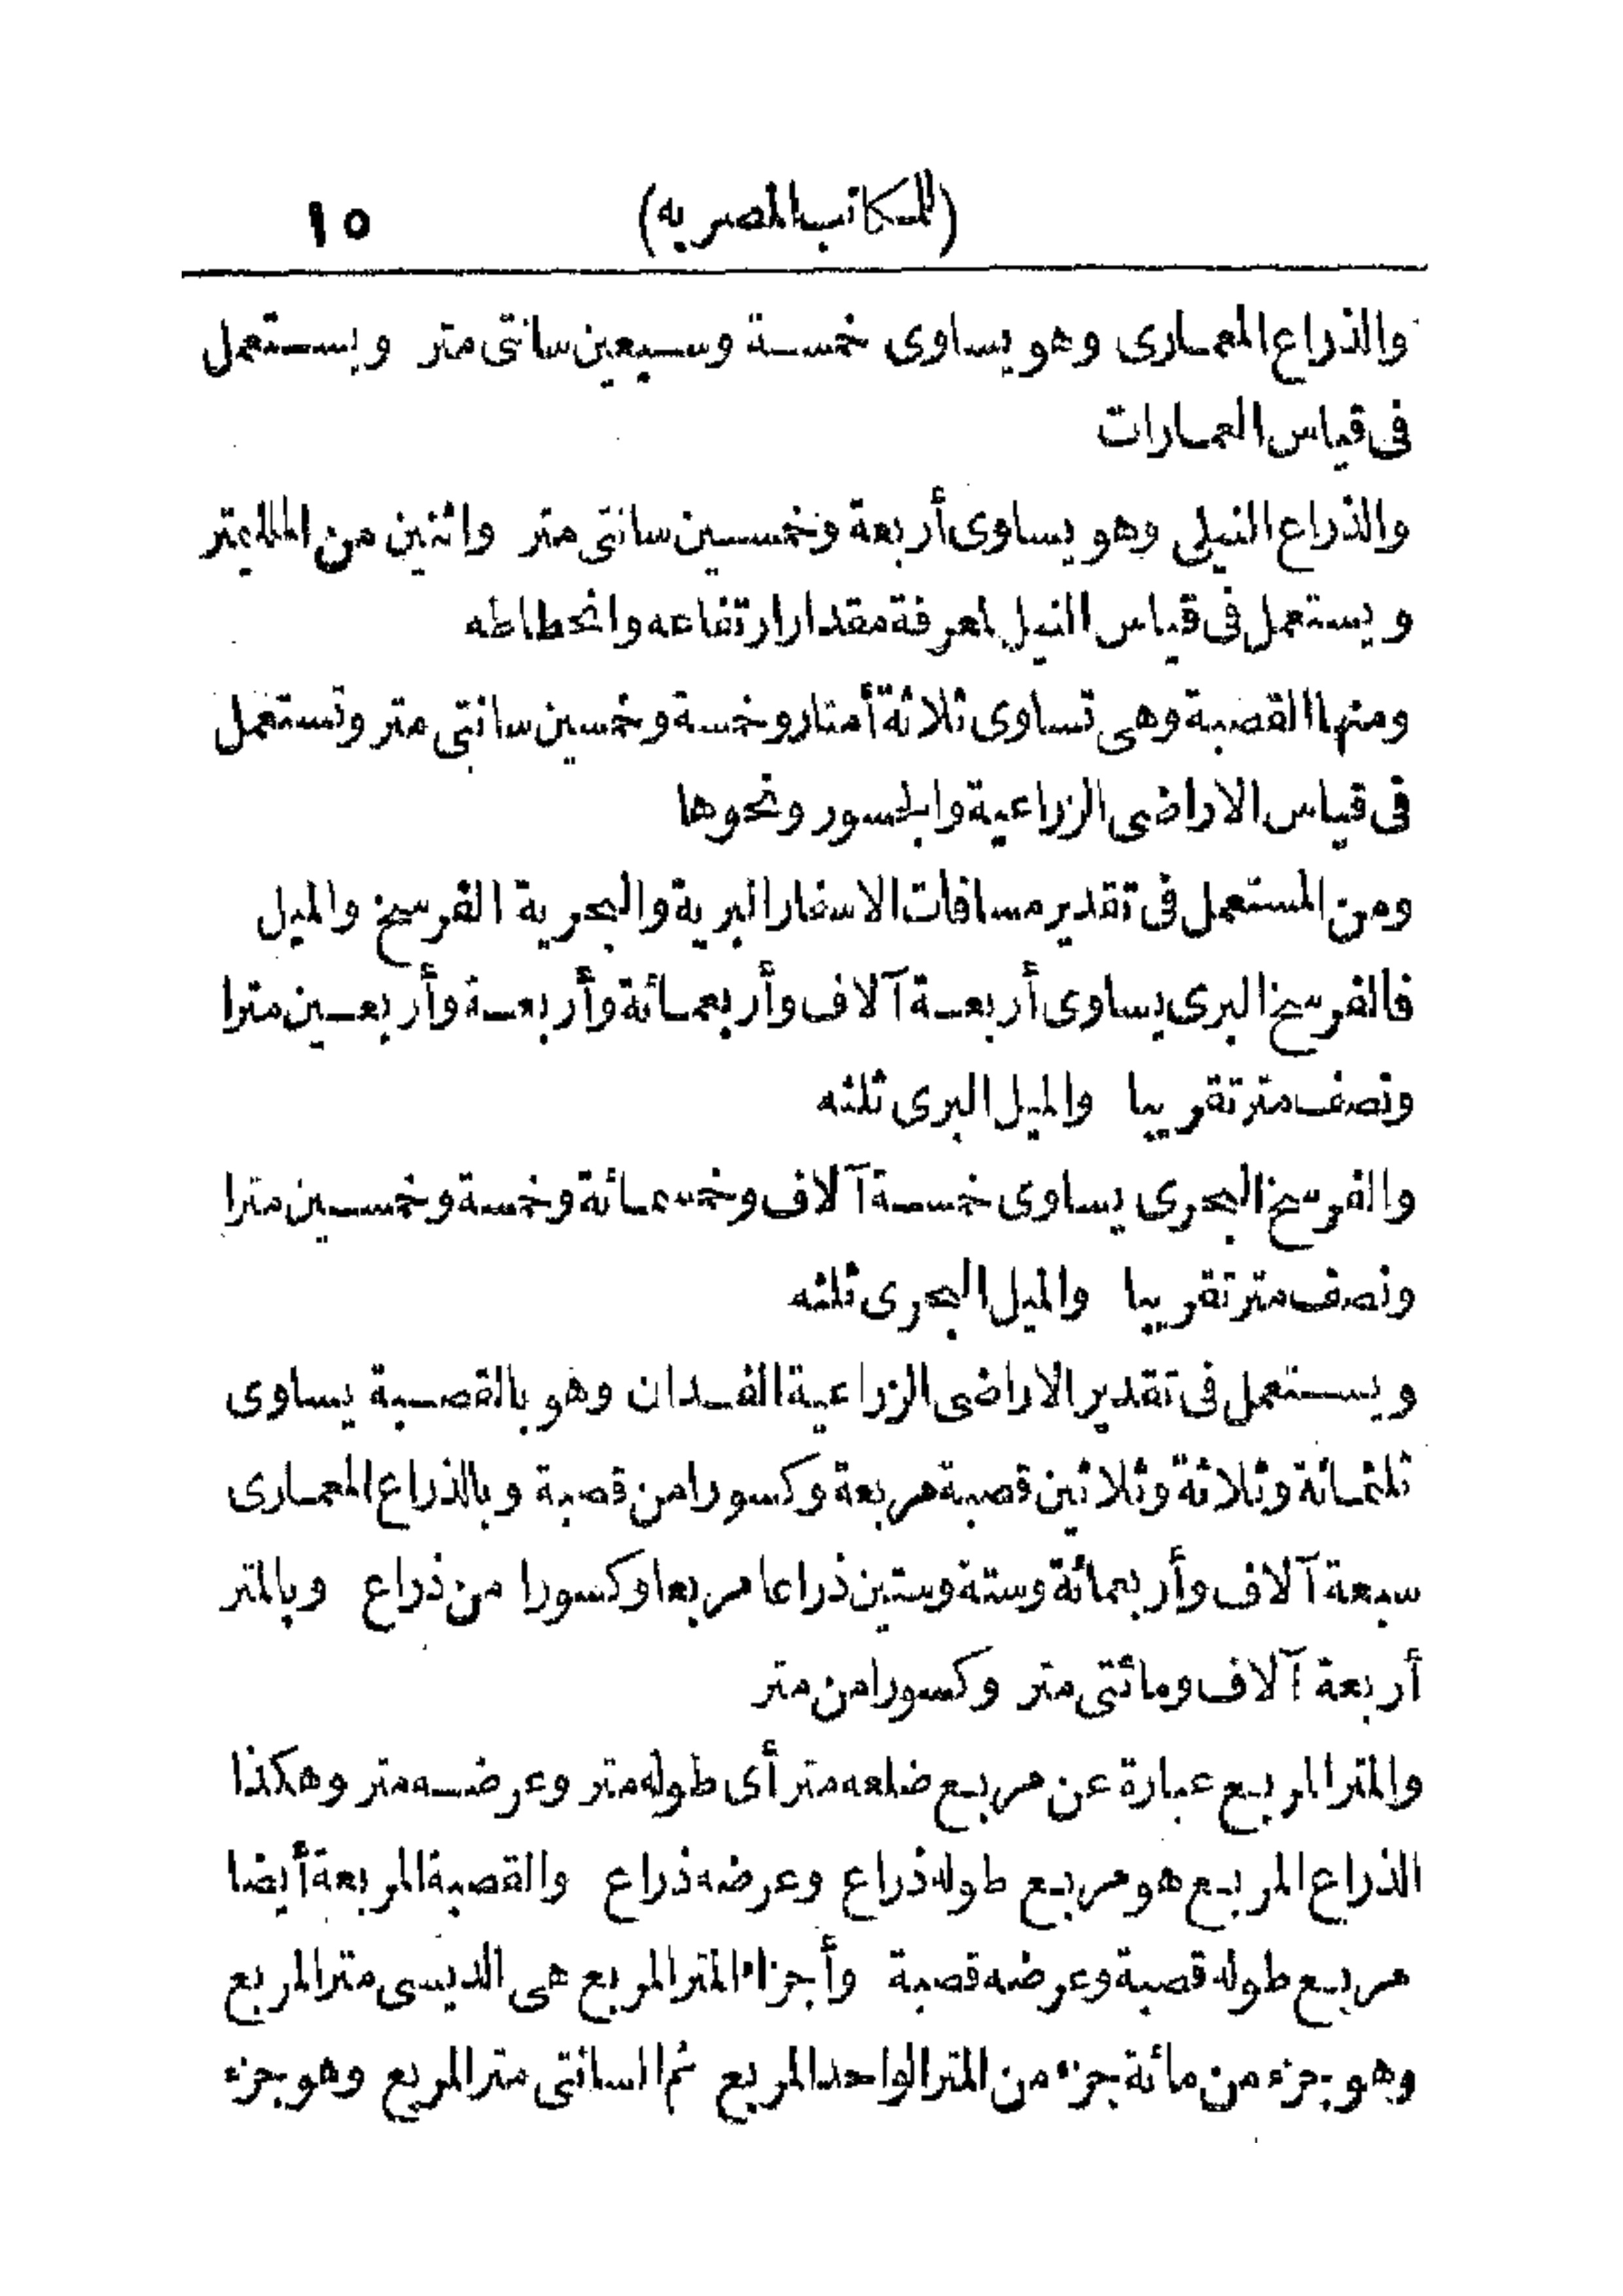 (للمكاتب المصريه) ١٥
والذراع المعمارى وهو يساوى خمسة وسبعين سانتى متر ويستعمل
فى قياس العمارات
والذراع النيلى وهو يساوى أربعة وخمسين سانتى متر واثنين من المللمتر
ويستعمل فى قياس النيل لمعرفة مقدار ارتفاعه وانحطاطه
ومنها القصبة وهى تساوى ثلاثة أمتار وخمسة وخمسين سانتى متر وتستعمل
فى قياس الاراضى الزراعية والجسور ونحوها
ومن المستعمل فى تقدير مسافات الاسفار البرية والبحرية الفرسخ والميل
فالفرسخ البرى يساوى أربعة آلاف وأربعمائة وأربعة وأربعين مترا
ونصف متر تقريبا والميل البرى ثلثه
والفرسخ البحرى يساوى خمسة آلاف وخمسمائة وخمسة وخمسين مترا
ونصف متر تقريبا والميل البحرى ثلثه
ويستعمل فى تقدير الاراضى الزراعية الفدان وهو بالقصبة يساوى
ثلثمائة وثلاثة وثلاثين قصبة مربعة وكسورا من قصبة وبالذراع المعمارى
سبعة آلاف وأربعمائة وستة وستين ذراعا مربعا وكسورا من ذراع وبالمتر
أربعة آلاف ومائتى متر وكسورا من متر
والمتر المربع عبارة عن مربع ضلعه متر أى طوله متر وعرضه متر وهكذا
الذراع المربع هو مربع طوله ذراع وعرضه ذراع والقصبة المربعة أيضا
مربع طوله قصبة وعرضه قصبة وأجزاء المتر المربع هى الديسى متر المربع
وهو جزء من مائة جزء من المتر الواحد المربع ثم السانتى متر المربع وهو جزء